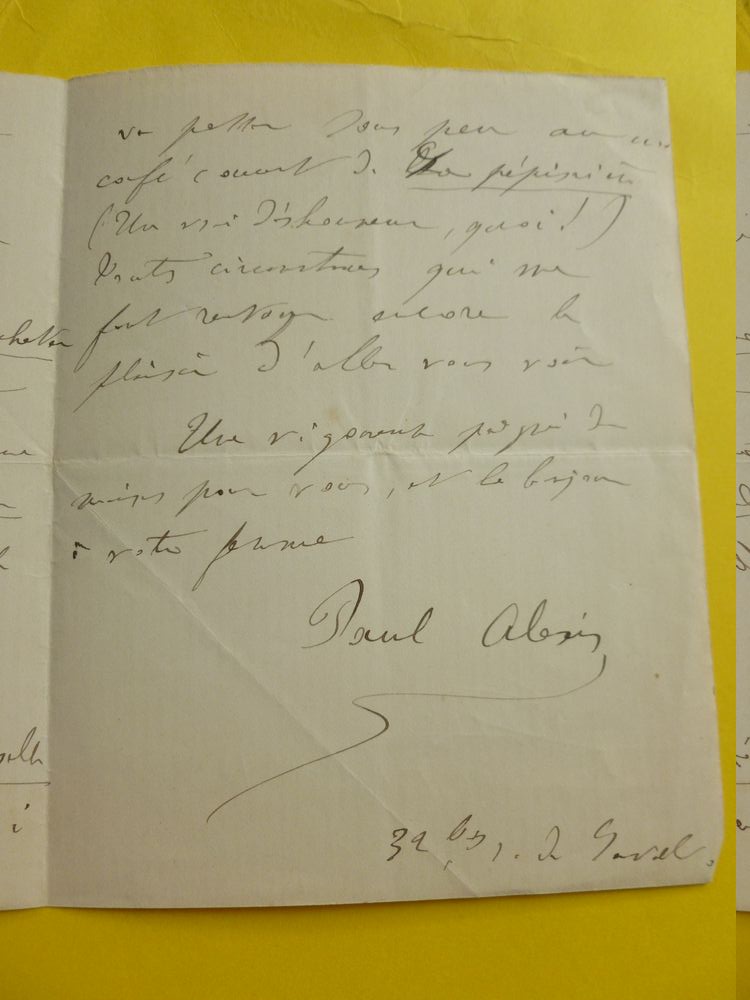 va passer sous peu au
café (avant de La pépinière
(Un vrai déshonneur, quoi!)
circonstances qui me
font renvoyer encore le
plaisir d'aller vous voir
Une vigoureuse poignée de
mains pour vous, et le bonjour
à votre femme
Paul Alexis
32 bis r. de